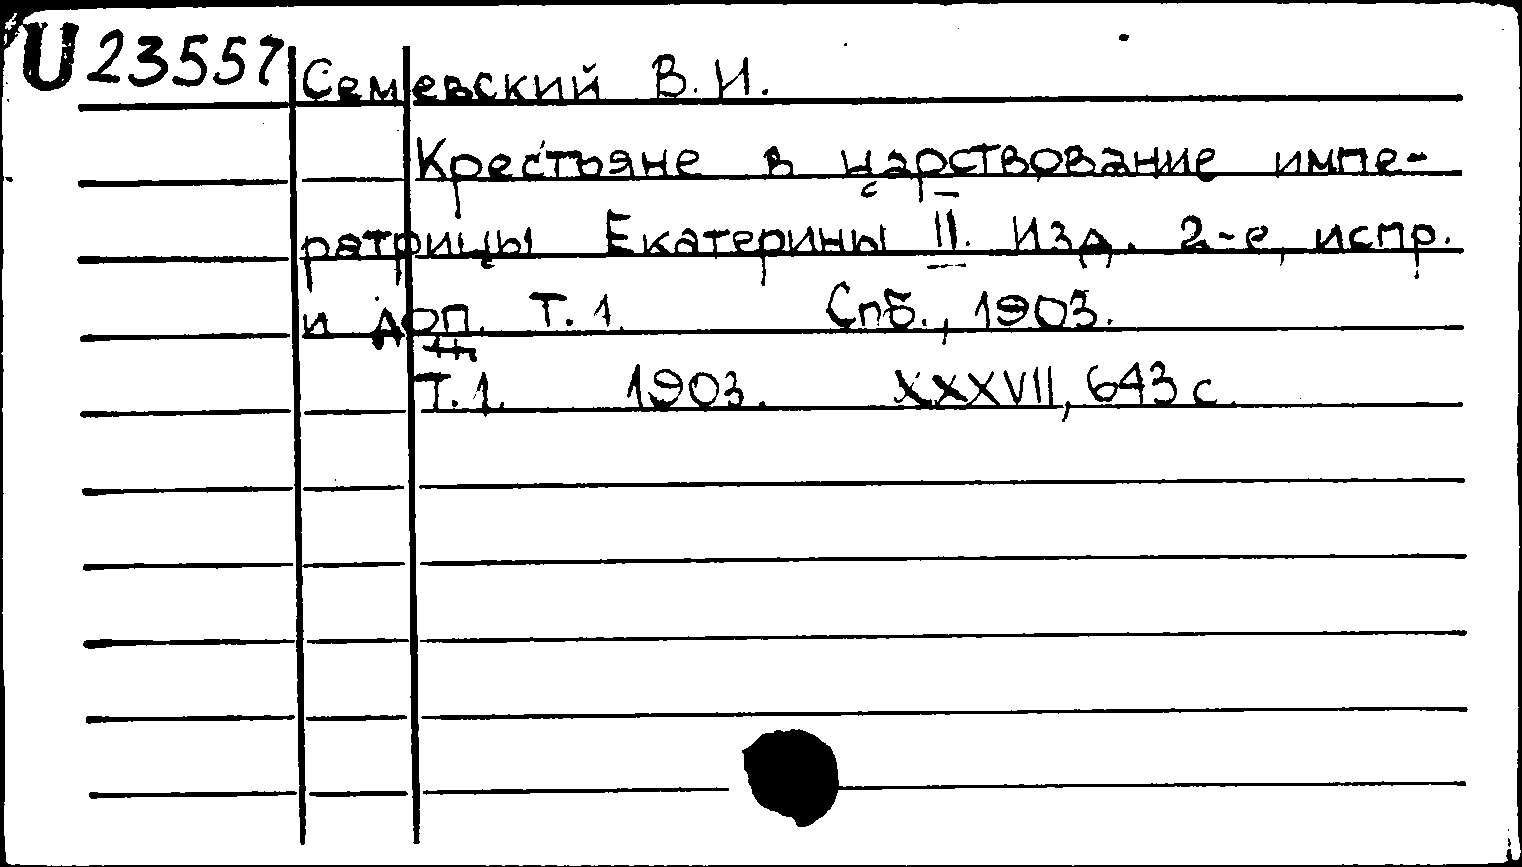 U 23557 Семевский В.И.
Крестьяне в царствование импе-
ратрицы Екатерины II. Изд. 2-е, испр.
и доп. Т. 1. Спб., 1903.
Т. 1. 1903. XXXVII, 643 с.